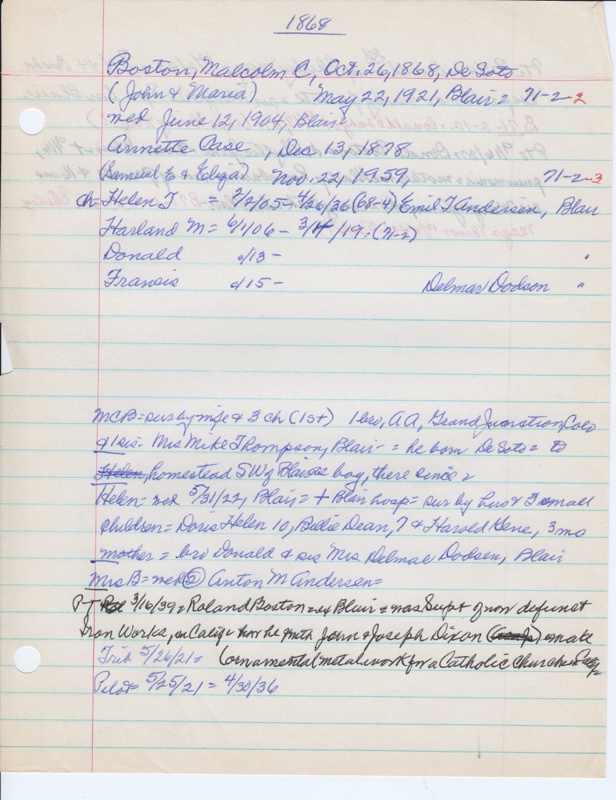 1868
Boston, Malcolm C, Oct. 26, 1868, De Soto
(John & Maria) May 22, 1921, Blair = 71-2-2
med June 12, 1904, Blair =
Annette Case, Dec 13, 1878
(Samuel E & Eliza) Nov. 22, 1959, 71-2-3
ch = Helen I = 2/2/05 - 4/26/36 (68-4) Emil T Andersen, Blair
Harland M = 6/1/06 - 3/14/19 = (71-2)
Donald c/13 - "
Francis c/15 - Delmar Dodson "
MCB = sur by wife & 3 ch (1st) 1 bro, AA, Grand Junction Colo
& 1 sis = Mrs Mike Thompson, Blair = he born De Soto = to
Helen, homestead SW of Blair as boy, there since =
Helen = med 5/31/22, Blair = + Blair hosp = sur by hus & 3 small
children = Doris Helen 10, Billie Dean, 7 & Harold Gene, 3 mo
mother = bro Donald & sis Mrs Delmar Dodson, Blair
Mrs B = med ② Anton M Andersen =
PT 3/16/39 = Roland Boston = ex Blair = was Supt of now defunct
Iron Works, in Calif now he with John & Joseph Dixon make
Trib 5/26/21 = (ornamental metal work for a Catholic Church in
Pilot = 5/25/21 = 4/30/36